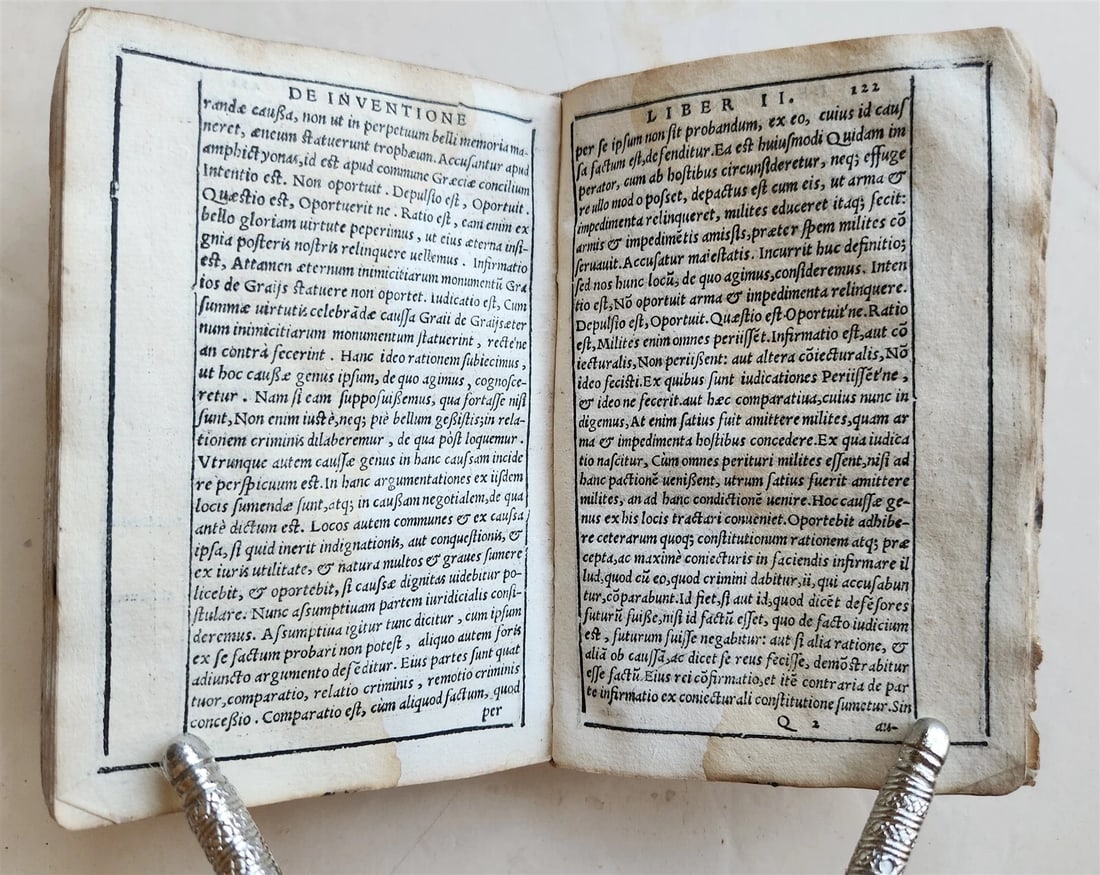 DE INVENTIONE
randæ caußa, non ut in perpetuum belli memoria ma-
neret, æneum statuerunt trophæum. Accusantur apud
amphictyonas, id est apud commune Græciæ concilium
Intentio est. Non oportuit. Depulsio est, Oportuit.
Quæstio est, Oportuerit ne. Ratio est, eam enim ex
bello gloriam uirtute peperimus, ut eius æterna insi-
gnia posteris nostris relinquere uellemus. Infirmatio
est, Attamen æternum inimicitiarum monumentū Gra
ios de Graijs statuere non oportet. Iudicatio est, Cum
summæ uirtutis celebrādæ caussa Graii de Graijs æter
num inimicitiarum monumentum statuerint, recte'ne
an contrà fecerint. Hanc ideo rationem subiecimus,
ut hoc caußæ genus ipsum, de quo agimus, cognosce-
retur. Nam si eam supposuißemus, qua fortasse nisi
sunt, Non enim iustè, neq; piè bellum geßistis; in rela-
tionem criminis dilaberemur, de qua pòst loquemur.
Vtrunque autem caussæ genus in hanc caussam incide
re perspicuum est. In hanc argumentationes ex iisdem
locis sumendæ sunt, atq; in caußam negotialem, de qua
antè dictum est. Locos autem communes & ex caussa
ipsa, si quid inerit indignationis, aut conquestionis, &
ex iuris utilitate, & natura multos & graues sumere
licebit, & oportebit, si caussæ dignitas uidebitur po-
stulare. Nunc assumptiuam partem iuridicialis consi-
deremus. Assumptiua igitur tunc dicitur, cum ipsum
ex se factum probari non potest, aliquo autem foris
adiuncto argumento defēditur. Eius partes sunt quat
tuor, comparatio, relatio criminis, remotio criminis
conceßio. Comparatio est, cùm aliquod factum, quod
per
LIBER II. 122
per se ipsum non sit probandum, ex eo, cuius id caus
sa factum est, defenditur. Ea est huiusmodi Quidam im
perator, cum ab hostibus circunsideretur, neq; effuge
re ullo modo posset, depactus est cum eis, ut arma &
impedimenta relinqueret, milites educeret itaq; fecit:
armis & impedimētis amissis, præter spem milites cō
seruauit. Accusatur maiestatis. Incurrit huc definitio;
sed nos hunc locū, de quo agimus, consideremus. Inten
tio est, Nō oportuit arma & impedimenta relinquere.
Depulsio est, Oportuit. Quæstio est. Oportuit'ne. Ratio
est, Milites enim omnes periissēt. Infirmatio est, aut cō
iecturalis, Non periißent: aut altera cōiecturalis, Nō
ideo fecisti. Ex quibus sunt iudicationes Periissēt'ne,
& ideo ne fecerit. aut hæc comparatiua, cuius nunc in
digemus, At enim satius fuit amittere milites, quam ar
ma & impedimenta hostibus concedere. Ex qua iudica
tio nascitur, Cùm omnes perituri milites essent, nisi ad
hanc pactionē uenißent, utrum satius fuerit amittere
milites, an ad hanc condictionē uenire. Hoc caussæ ge-
nus ex his locis tractari conueniet. Oportebit adhibe-
re ceterarum quoq; constitutionum rationem atq; præ
cepta, ac maximè coniecturis in faciendis infirmare il
lud, quod cū eo, quod crimini dabitur, ii, qui accusabun
tur, cōparabunt. Id fiet, si aut id, quod dicēt defēsores
futurū fuiße, nisi id factū esset, quo de facto iudicium
est, futurum fuisse negabitur: aut si alia ratione, &
aliā ob caussā, ac dicet se reus fecisse, demōstrabitur
esse factū. Eius rei cōfirmatio, et itē contraria de par
te infirmatio ex coniecturali constitutione sumetur. Sin
Q 2 au-